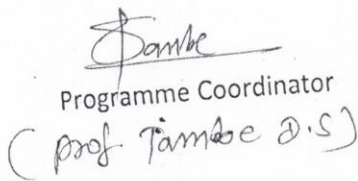 Sambe
Programme Coordinator
(Prof Tambe D.S)